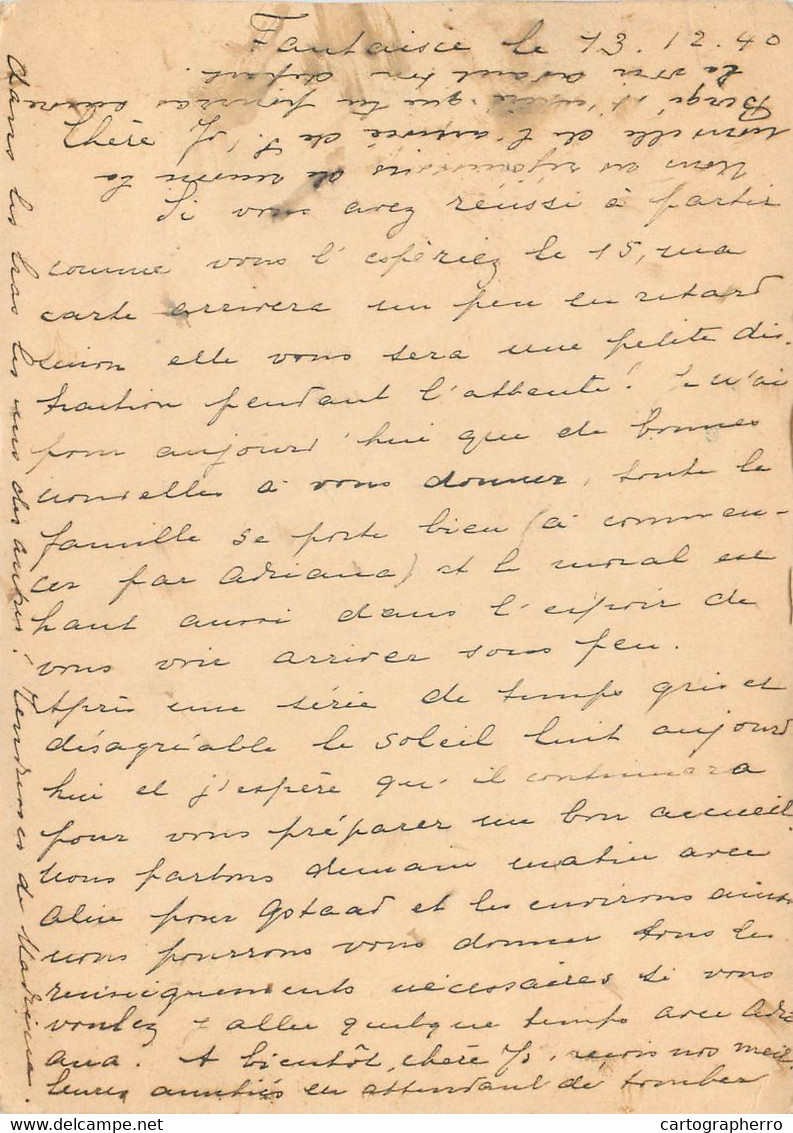 Fantaisie le 13.12.40
Chère
Si vous avez réussi à partir
comme vous l'espériez le 15, ma
carte arrivera un peu en retard
sinon elle vous sera une petite dis-
traction pendant l'attente! Je n'ai
pour aujourd'hui que de bonnes
nouvelles à vous donner, toute la
famille se porte bien (à commen-
cer par Adriana) et le moral est
haut aussi dans l'espoir de
vous voir arriver sous peu.
Après une série de temps gris et
désagréable le soleil luit aujourd
hui et j'espère qu'il continuera
pour vous préparer un bon accueil.
Nous partons demain matin avec
Aline pour Gstaad et les environs ainsi
nous pourrons vous donner tous les
renseignements nécessaires si vous
voulez y aller quelque temps avec Adri
ana. A bientôt, chère reçois nos meil
leures amitiés en attendant de tomber
dans les bras les uns des autres! Tendresses de
Nous nous réjouissons de recevoir la
nouvelle de l'arrivée de
que tu pourras encore
la voir avant ton départ.
cartographerro